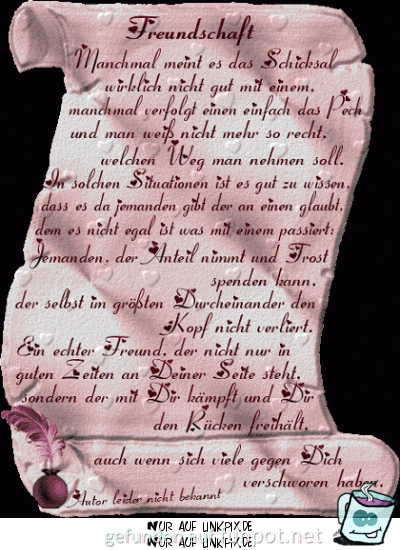 Freundschaft
Manchmal meint es das Schicksal
wirklich nicht gut mit einem,
manchmal verfolgt einen einfach das Pech
und man weiß nicht mehr so recht,
welchen Weg man nehmen soll.
In solchen Situationen ist es gut zu wissen,
dass es da jemanden gibt der an einen glaubt,
dem es nicht egal ist was mit einem passiert:
Jemanden, der Anteil nimmt und Trost
spenden kann,
der selbst im größten Durcheinander den
Kopf nicht verliert.
Ein echter Freund, der nicht nur in
guten Zeiten an Deiner Seite steht,
sondern der mit Dir kämpft und Dir
den Rücken freihält,
auch wenn sich viele gegen Dich
verschworen haben.
Autor leider nicht bekannt
NUR AUF LINKPIX.DE
NUR AUF LINKPIX.DE